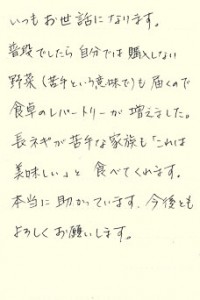 いつもお世話になります。
普段でしたら自分では購入しない
野菜(苦手という意味で)も届くので
食卓のレパートリーが増えました。
長ネギが苦手な家族も「これは
美味しい」と食べてくれます。
本当に助かっています。今後とも
よろしくお願いします。